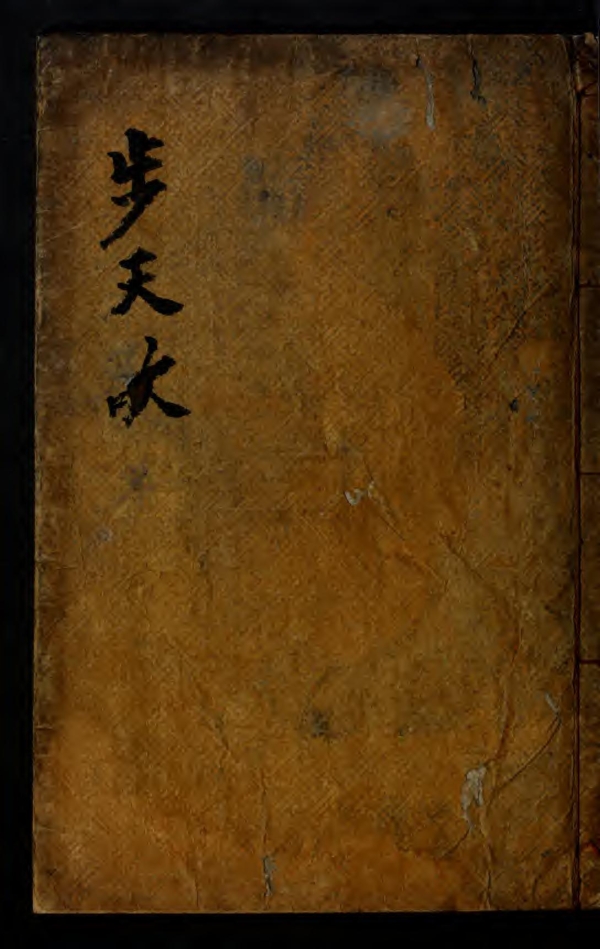 步天歌